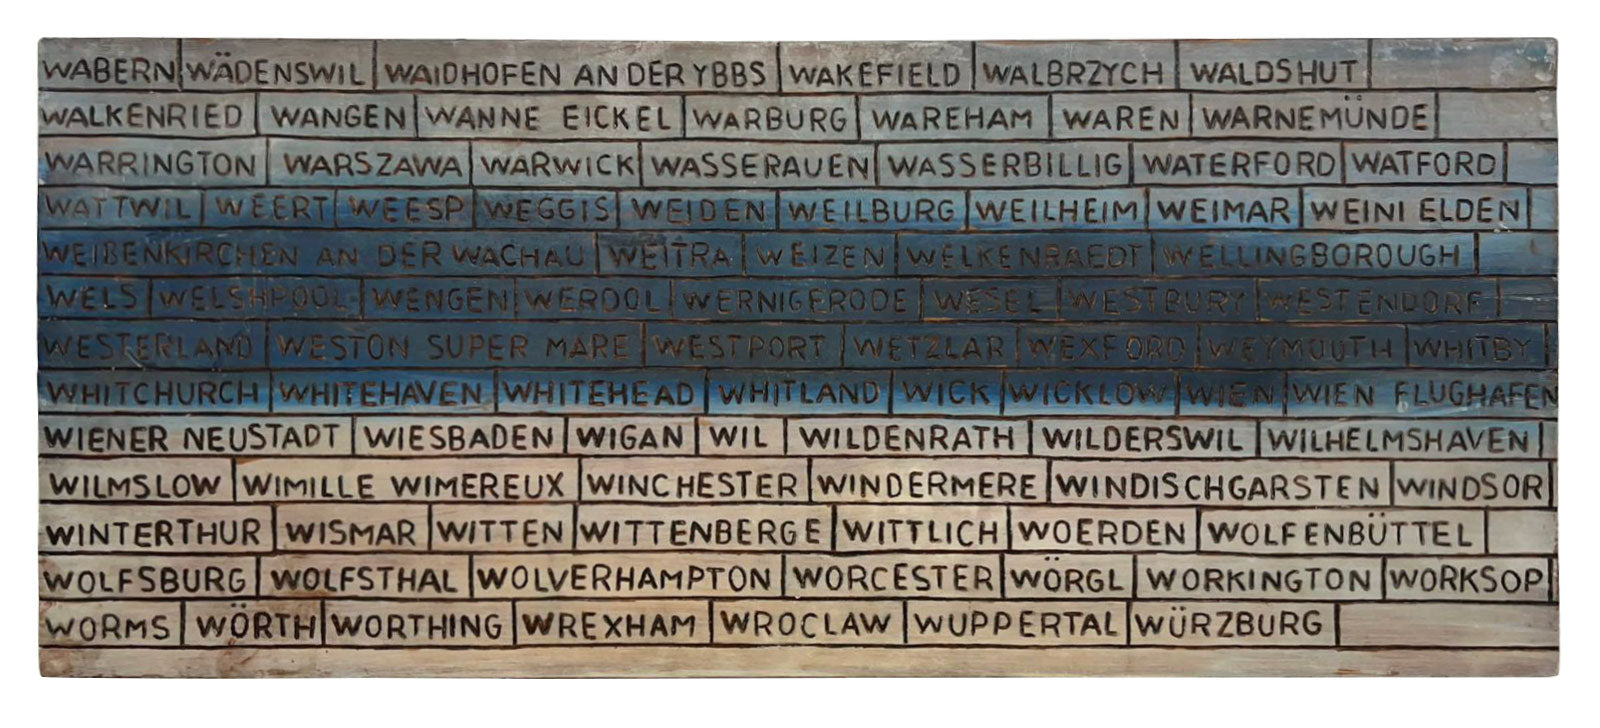 WABERN WÄDENSWIL WAIDHOFEN AN DER YBBS WAKEFIELD WALBRZYCH WALDSHUT
WALKENRIED WANGEN WANNE EICKEL WARBURG WAREHAM WAREN WARNEMÜNDE
WARRINGTON WARSZAWA WARWICK WASSERAUEN WASSERBILLIG WATERFORD WATFORD
WATTWIL WEERT WEESP WEGGIS WEIDEN WEILBURG WEILHEIM WEIMAR WEINI ELDEN
WEIßENKIRCHEN AN DER WACHAU WEITRA WEIZEN WELKENRAEDT WELLINGBOROUGH
WELS WELSHPOOL WENGEN WERDOL WERNIGERODE WESEL WESTBURY WESTENDORF
WESTERLAND WESTON SUPER MARE WESTPORT WETZLAR WEXFORD WEYMOUTH WHITBY
WHITCHURCH WHITEHAVEN WHITEHEAD WHITLAND WICK WICKLOW WIEN WIEN FLUGHAFEN
WIENER NEUSTADT WIESBADEN WIGAN WIL WILDENRATH WILDERSWIL WILHELMSHAVEN
WILMSLOW WIMILLE WIMEREUX WINCHESTER WINDERMERE WINDISCHGARSTEN WINDSOR
WINTERTHUR WISMAR WITTEN WITTENBERGE WITTLICH WOERDEN WOLFENBÜTTEL
WOLFSBURG WOLFSTHAL WOLVERHAMPTON WORCESTER WÖRGL WORKINGTON WORKSOP
WORMS WÖRTH WORTHING WREXHAM WROCLAW WUPPERTAL WÜRZBURG